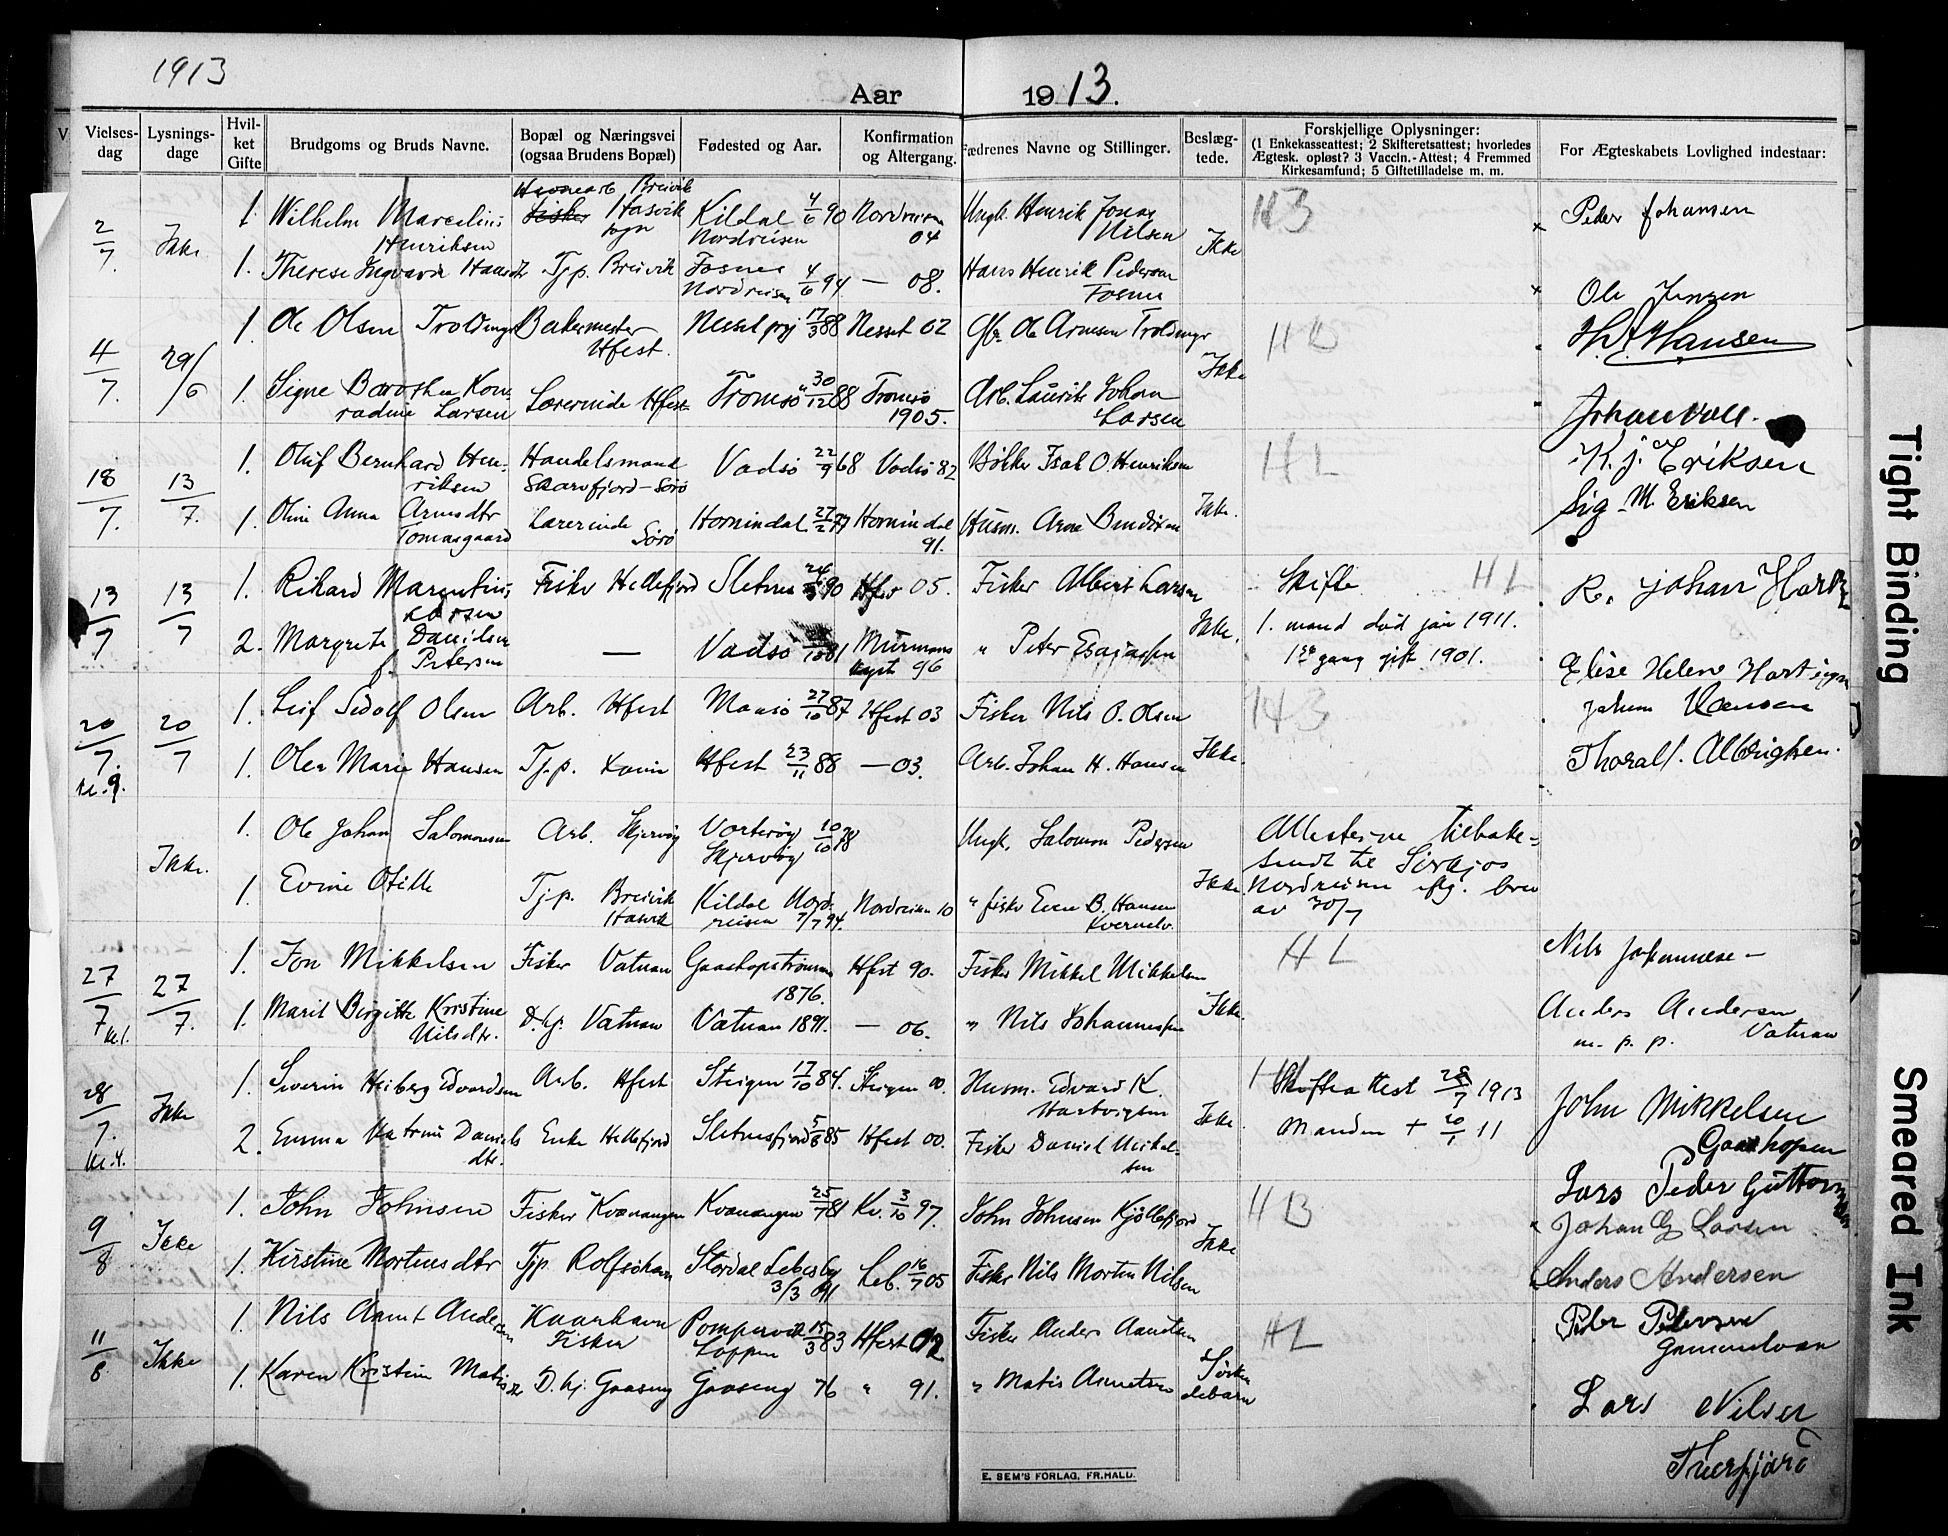 1913
Aar 1913.
Vielses-dag
Lysnings-dage
Hvil-ket Gifte
Brudgoms og Bruds Navne.
Bopæl og Næringsvei (ogsaa Brudens Bopæl)
Fødested og Aar.
Konfirmation og Altergang.
Fædrenes Navne og Stillinger.
Beslæg-tede.
Forskjellige Oplysninger:
(1 Enkekasseattest; 2 Skifteretsattest; hvorledes
Ægtesk. opløst? 3 Vaccin.-Attest; 4 Fremmed
Kirkesamfund; 5 Giftetilladelse m. m.
For Ægteskabets Lovlighed indestaar:
2/7. Ikke 1. Wilhelm Marcelius Henriksen Breivik Hasvik sogn Kildal Nordreisen 4/6 90 Nordreisen 04 Ungk. Henrik Josias Nilsen Ikke Peder Johansen
1. Therese Ingvarda Hansdtr Tjp. Breivik Fosnes Nordreisen 4/6 94 — 08. Hans Henrik Pedersen Fosnes Ole Jensen
4/7. 29/6 1. Ole Olsen Troldmyr Bakermester Hfest. Nesset prj 17/3 88 Nesset 02 Gbr Ole Arnesen Troldmyr Ikke H. Hansen
1. Signe Dorothea Konradine Larsen Lærerinde Hfest Tromsø 30/12 88 Tromsø 1905. Arb. Laurits Johan Larsen Johan Voll.
18/7. 13/7. 1. Oluf Bernhard Henriksen Handelsmand Skarvfjord - Sørø Vadsø 22/9 68 Vadsø 82 Bøkker Isak O. Henriksen Ikke. H L K. J. Eriksen
1. Oline Anna Arnesdtr Tomasgaard Lærerinde Sørø Hornindal 27/2 77 Hornindal 91. Husm. Arne Bendixen Sig. M. Eriksen
13/7 13/7 1. Rikard Marentius Larsen Fisker Hellefjord Sletnes 90 Hfest 05. Fisker Albert Larsen Ikke. Skifte. H L R. Johan Hartz
2. Margrete Danielsen f. Petersen — Vadsø 81 Murmans kyst 96 " Peter Esaiassen 1. mand død jan 1911.
1ste gang gift 1901. Elise Helene
20/7. kl. 9. 20/7 1. Leif Sedolf Olsen Arb. Hfest Maasø 27/10 87 Hfest 03 Fisker Nils O. Olsen Ikke. Johan Hansen
1. Olea Marie Hansen Tj.p. Hfest 23/11 88 — 03. Arb. Johan H. Hansen Thoralf. Albrigtsen.
Ikke. 1. Ole Johan Salomonsen Arb. Skjervøy Vorterøy Skjervøy 10/10 78 Ungk. Salomon Pedersen Ikke. Attesterne tilbake-
sendt til Sørkjos
1. Evine Otilie Tjp. Breivik Hasvik Kildal Nordreisen 7/7 94. Nordreisen 10 " fisker Even B. Hansen Kvernelv. Nordreisen eftg. brev
av 30/7
27/7 kl. 1. 27/7. 1. Jon Mikkelsen Fisker Vatnan Gaashopstrømmen 1876. Hfest 90. Fisker Mikkel Mikkelsen Ikke. H L Nils Johannese -
1. Marit Birgitte Kristine Nilsdtr. D. hj. Vatnan Vatnan 1891. — 06. " Nils Johannessen Anders Andersen Vatnan m. p. p.
28/7. kl. 4. Ikke 1. Severin Heiberg Edvardsen Arb. Hfest Steigen 17/10 84. Steigen 00. Husm. Edvard K. Hartvigsen Ikke. Skifteattest 28/7 1913 John Mikkelsen Gaashopen
2. Emma Katrine Danielsdtr. Enke Hellefjord Sletnesfjord 5/8 85 Hfest 00. Fisker Daniel Mikkelsen Manden + 20/1 11 Lars Peder Guttormsen
9/8 Ikke 1. John Johnsen Fisker Kvænangen Kvænangen 25/7 81 Kv. 3/10 97. John Johnsen Kjøllefjord Ikke Johan G Larsen
1. Kirstine Mortensdtr Tjp. Rolfsøhavn Stordal Lebesby 3/3 91 Leb. 16/7 05 Fisker Nils Morten Nilsen Anders Andersen
11/8 Ikke 1. Nils Aamt Andersen Kvarhavn Fisker Loppen 15/3 83 Hfest 02 Fisker Anders Aamtsen Søskendebarn H L Peder Pedersen
1. Karen Kristine Matisdtr D. hj. Gaasnes Gaasnes 76 " 91. " Matis Aamtsen Lars Nilsen
E. SEM'S FORLAG, FR.HALD.
Tight Binding
Smeared Ink